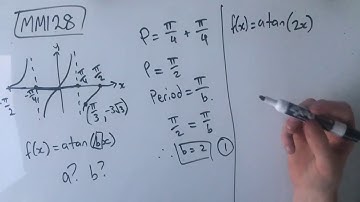 MM128
y
x
-π/2
-π/4
π/4
π/2
(π/3, -3√3)
f(x) = atan(bx)
a? b?
P = π/4 + π/4
P = π/2
Period = π/b.
π/2 = π/b
∴ b = 2 ①
f(x) = atan(2x)